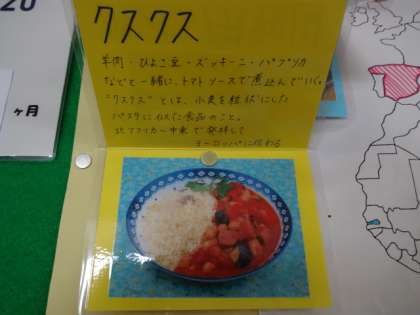 20
ヶ月
クスクス
羊肉・ひよこ豆・ズッキーニ・パプリカ
などと一緒に、トマトソースで煮込んでいく。
"クスクス"とは、小麦を粒状にした
パスタに似た食品のこと。
北アフリカ〜中東で発祥して
ヨーロッパに伝わる